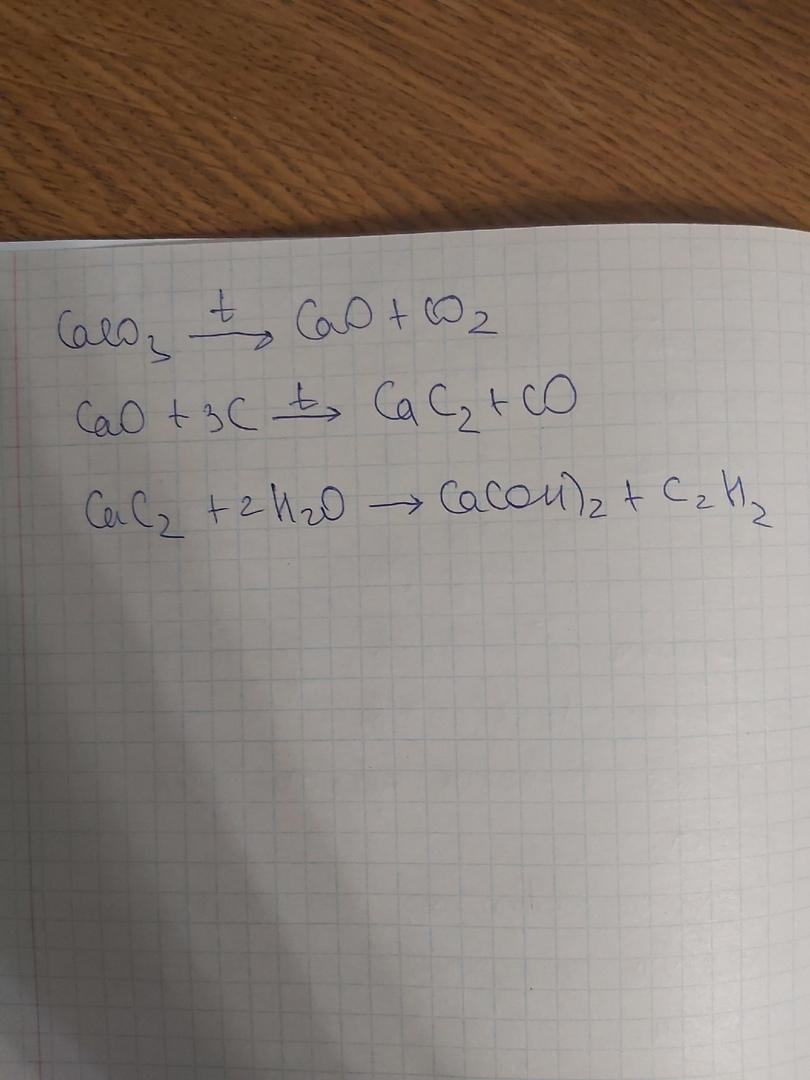 CaCO₃ —t→ CaO + CO₂
CaO + 3C —t→ CaC₂ + CO
CaC₂ + 2H₂O → Ca(OH)₂ + C₂H₂